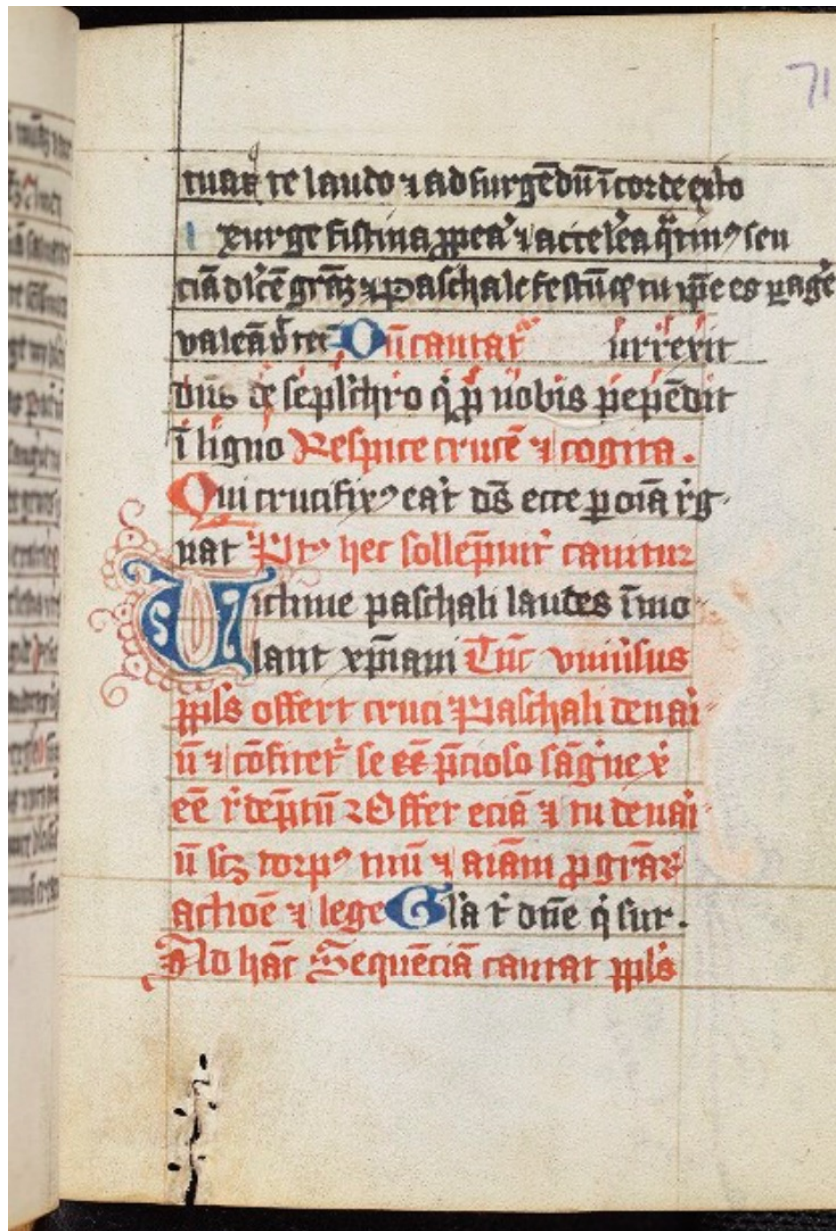 71
tuaʒ te laudo ⁊ ad surgēdū ī corde
xurge festina ꝓpea᷑ ⁊ accel'ea seu
ciā dicē grāꝝ ⁊ Paschale festū tu ip̄e es ꝑagē
valeā Dū cantat᷑ urrexit
dn̄s de sepl'chro q̇ ꝓ nobis pepēdit
ī ligno Respice crucē ⁊ cogita.
Qui crucifixꝰ erat ds̄ ecce ꝑ oīa rͥg
nat hec sollēpnit᷑ canitur
Victime paschali laudes īmo
lant xp̄iani Tūc vniūsus
ppl's offert cruci Paschali denari
ū ⁊ cōfitet᷑ se p̄cioso sāgⁱne xͥ
eē rͥdēptū Offer eciā ⁊ tu denari
ū scꝫ corpꝰ tuū ⁊ aīam ꝓ grāꝝ
actiōe ⁊ lege Gl'a tͥ dn̄e q̇ sur.
Ad hāc Sequēciā cantat ppl's